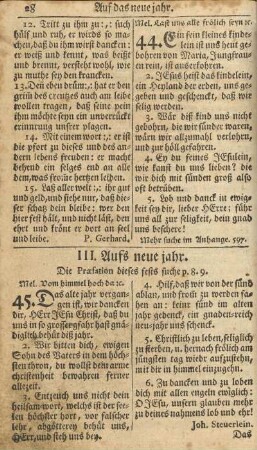 28 Auf das neue jahr.
12. Tritt zu ihm zu :,: such
hülf und ruh, er wirds so ma-
chen, daß du ihm wirst dancken:
er weiß und kennt, was beißt
und brennt, verstehet wohl, wie
zu muthe sey den krancken.
13. Den eben drüm, :,: hat er den
grim des creutzes auch am leibe
wollen tragen, daß seine pein
ihm möchte seyn ein unverrückt
erinnerung unsrer plagen.
14. Mit einem wort :,: er ist
die pfort zu dieses und des an-
dern lebens freuden: er macht
behend ein selges end an alle
dem, was fromme hertzen leiden.
15. Laß aller welt :,: ihr gut
und geld, und siehe nur, daß die-
ser schatz dir bleibe: wer den
hier fest hält, und nicht läßt, den
ehrt und krönt er dort an seel
und leibe. P. Gerhard.
Mel. Last uns alle frölich seyn ꝛc.
44. Ein klein kindes kinde-
lein ist uns heut ge-
bohren von Maria, Jungfrau-
en rein, ist auserkohren.
2. JEsus heist das kindelein,
ein Heyland der erden, uns ge-
geben und geschenckt, daß wir
selig werden.
3. Wär diß kind uns nicht
gebohren, die wir sünder waren,
wären wir allzumahl verlohren,
und zur höll gefahren.
4. Ey du feines JEsulein,
wie kanst du uns lieben? die
wir dich mit sünden groß also
oft betrüben.
5. Lob und danck in ewig-
keit sey dir, lieber HErre: führ
uns all zur seligkeit, dein gnad
uns beschere!
Mehr suche im Anhange. 597.
III. Aufs neue jahr.
Die Præfation dieses fests suche p. 8. 9.
Mel. Vom himmel hoch da ꝛc.
45. Das alte jahr vergan-
gen ist, wir dancken
dir, HErr JEsu Christ, daß du
uns in so grosser gfahr hast gnä-
diglich behüt diß jahr.
2. Wir bitten dich, ewigen
Sohn des Vaters in dem höch-
sten thron, du wollst dein arme
christenheit bewahren ferner
allezeit.
3. Entzeuch uns nicht dein
heilsam wort, welchs ist der see-
len höchster hort, vor falscher
lehr, abgötterey behüt uns,
HErr, und steh uns bey.
4. Hilf, daß wir von der sünd
ablan, und from zu werden fa-
hen an: keinr sünd im alten
jahr gedenck, ein gnaden-reich
neu-jahr uns schenck.
5. Christlich zu leben, seliglich
zu sterben, und hernach frölich am
jüngsten tag wieder aufzustehn,
mit dir in himmel einzugehn.
6. Zu dancken und zu loben
dich mit allen engeln ewiglich:
O JEsu, unsern glauben mehr
zu deines nahmens lob und ehr!
Joh. Steuerlein.
Das